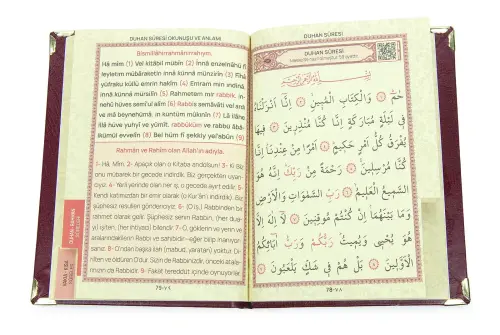 DUHAN SÛRESİ OKUNUŞU VE ANLAMI
Bismillâhirrahmânirrahîym.
Hâ mîm (1) Vel kitâbil mübîn (2) İnnâ enzelnâhü fî
leyletim mübâraketin innâ künnâ münzirîn (3) Fîhâ
yüfraku küllü emrin hakîm (4) Emram min indinâ,
innâ künnâ mürsilîn (5) Rahmetem mir rabbik, in-
nehû hüves semî'ul alîm (6) Rabbis semâvâti vel ardı
ve mâ beynehümâ, in küntüm mûkınîn (7) Lâ ilâhe
illâ hüve yuhyî ve yümît, rabbüküm ve rabbü âbâ-
ikümül evvelîn (8) Bel hüm fî şekkiy yel'abûn (9)
Rahmân ve Rahîm olan Allah'ın adıyla.
1- Hâ. Mîm. 2- Apaçık olan o Kitaba andolsun! 3- Ki Biz
onu mübarek bir gecede indirdik. Biz gerçekten uyarı-
cıyız. 4- Yeril yerinde olan her iş, o gecede ayırt edilir. 5-
Kendi katımızdan bir emir olarak (o Kur'ân'ı indirdik). Biz
şüphesiz resûller göndericiyiz. 6- (O iş,) Rabbinden bir
rahmet olarak gelir. Şüphesiz senin Rabbin, (her duay)
işiten, (her ihtiyacı) bilendir. 7- O, göklerin ve yerin ve
aralarındakilerin Rabbi ve sahibidir
8- O'ndan başka ilah (mabud, yaratan) yoktur.
nilten ve öldüren O'dur. Sizin de Rabbinizdir, önceki atala-
rınızın da Rabbidir. 9- Fakat tereddüt içinde oynuyorlar.
DUHAN SÛRESİ
DUHAN SÛRESİ
حٰمٓ ﴿١﴾ وَالْكِتَابِ الْمُبِينِ ﴿٢﴾ اِنَّٓا اَنْزَلْنَاهُ
فِي لَيْلَةٍ مُبَارَكَةٍ اِنَّا كُنَّا مُنْذِرِينَ ﴿٣﴾ فِيهَا
يُفْرَقُ كُلُّ اَمْرٍ حَكِيمٍ ﴿٤﴾ اَمْرًا مِنْ عِنْدِنَا اِنَّا
كُنَّا مُرْسِلِينَ ﴿٥﴾ رَحْمَةً مِنْ رَبِّكَ اِنَّهُ هُوَ
السَّمِيعُ الْعَلِيمُ ﴿٦﴾ رَبِّ السَّمٰوَاتِ وَالْاَرْضِ
وَمَا بَيْنَهُمَا اِنْ كُنْتُمْ مُوقِنِينَ ﴿٧﴾ لَٓا اِلٰهَ اِلَّا
هُوَ يُحْيِي وَيُمِيتُ رَبُّكُمْ وَرَبُّ اٰبَٓائِكُمُ
الْاَوَّلِينَ ﴿٨﴾ بَلْ هُمْ فِي شَكٍّ يَلْعَبُونَ ﴿٩﴾